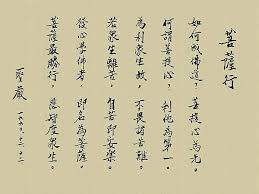 菩薩行
如何成佛道?菩提心為先。
何謂菩提心?利他為第一。
為利眾生故,不畏諸苦難。
若眾生離苦,自苦即安樂。
發心學佛者,即名為菩薩。
菩薩最勝行,悲智度眾生。
聖嚴